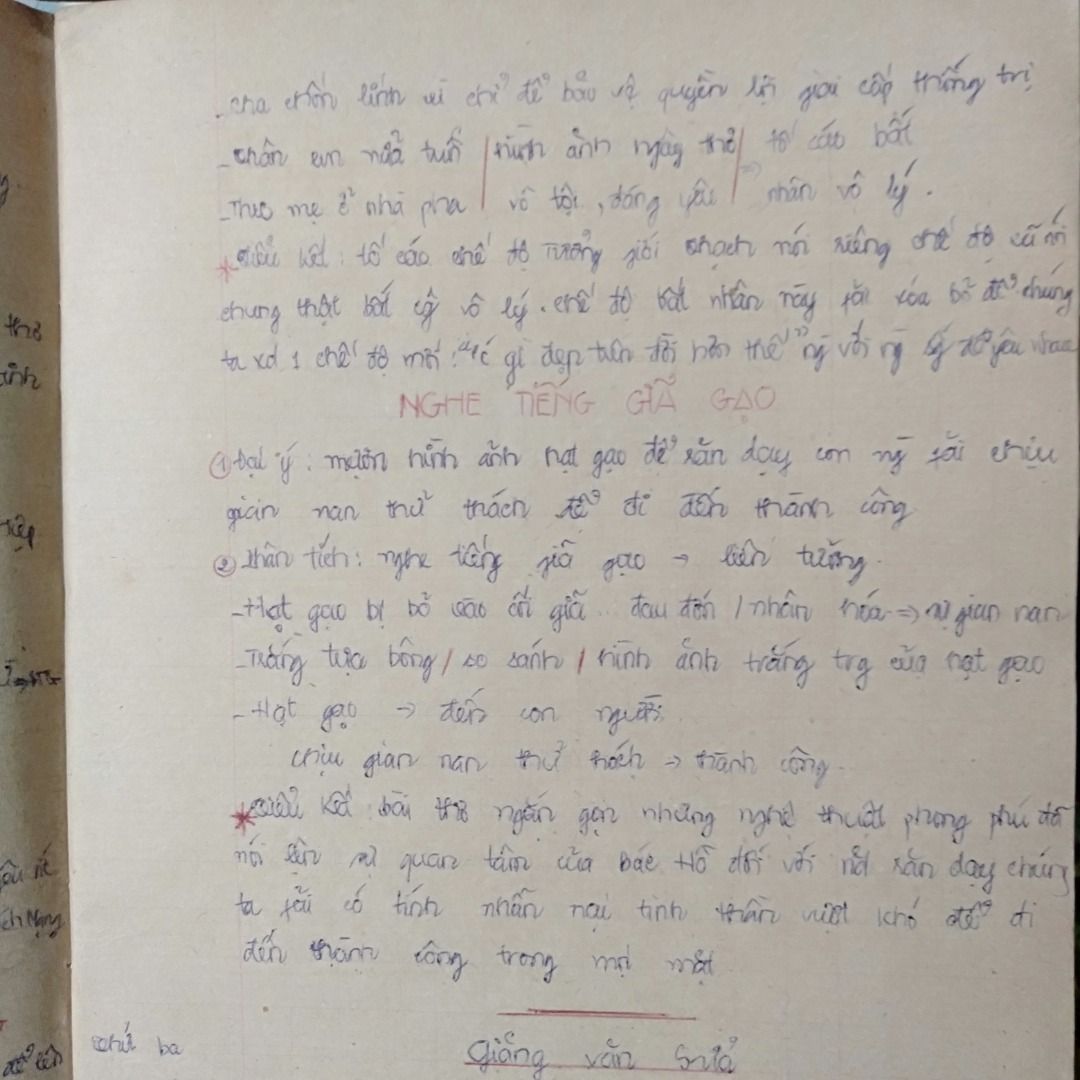 - cha trốn lính vì chỉ để bảo vệ quyền lợi giai cấp thống trị
- Thân em nửa tuổi / hình ảnh ngây thơ / tố cáo bất
- Theo mẹ ở nhà pha / vô tội, đáng yêu / => nhân vô lý.
* Tiểu kết: tố cáo chế độ Tưởng giới thạch nói riêng chế độ cũ nói
chung thật bất vô lý. chế độ bất nhân này fải xóa bỏ để chúng
ta xd 1 chế độ mới: "có gì đẹp trên đời hơn thế" ng với ng để yêu nhau
NGHE TIẾNG GIÃ GẠO
① Đại ý: mượn hình ảnh hạt gạo để răn dạy con ng fải chịu
gian nan thử thách để đi đến thành công
② Phân tích: nghe tiếng giã gạo → liên tưởng.
- Hạt gạo bị bỏ vào cối giã... đau đớn / nhân hóa => sự gian nan
- Trắng tựa bông / so sánh / hình ảnh trắng trg của hạt gạo
- Hạt gạo → đến con người.
chịu gian nan thử thách → thành công.
* Tiểu kết: bài thơ ngắn gọn nhưng nghệ thuật phong phú đã
nói lên sự quan tâm của Bác Hồ đối với răn dạy chúng
ta fải có tính nhẫn nại tinh thần vượt khó để đi
đến thành công trong mọi mặt
thứ ba
Giảng văn
thơ
ảnh